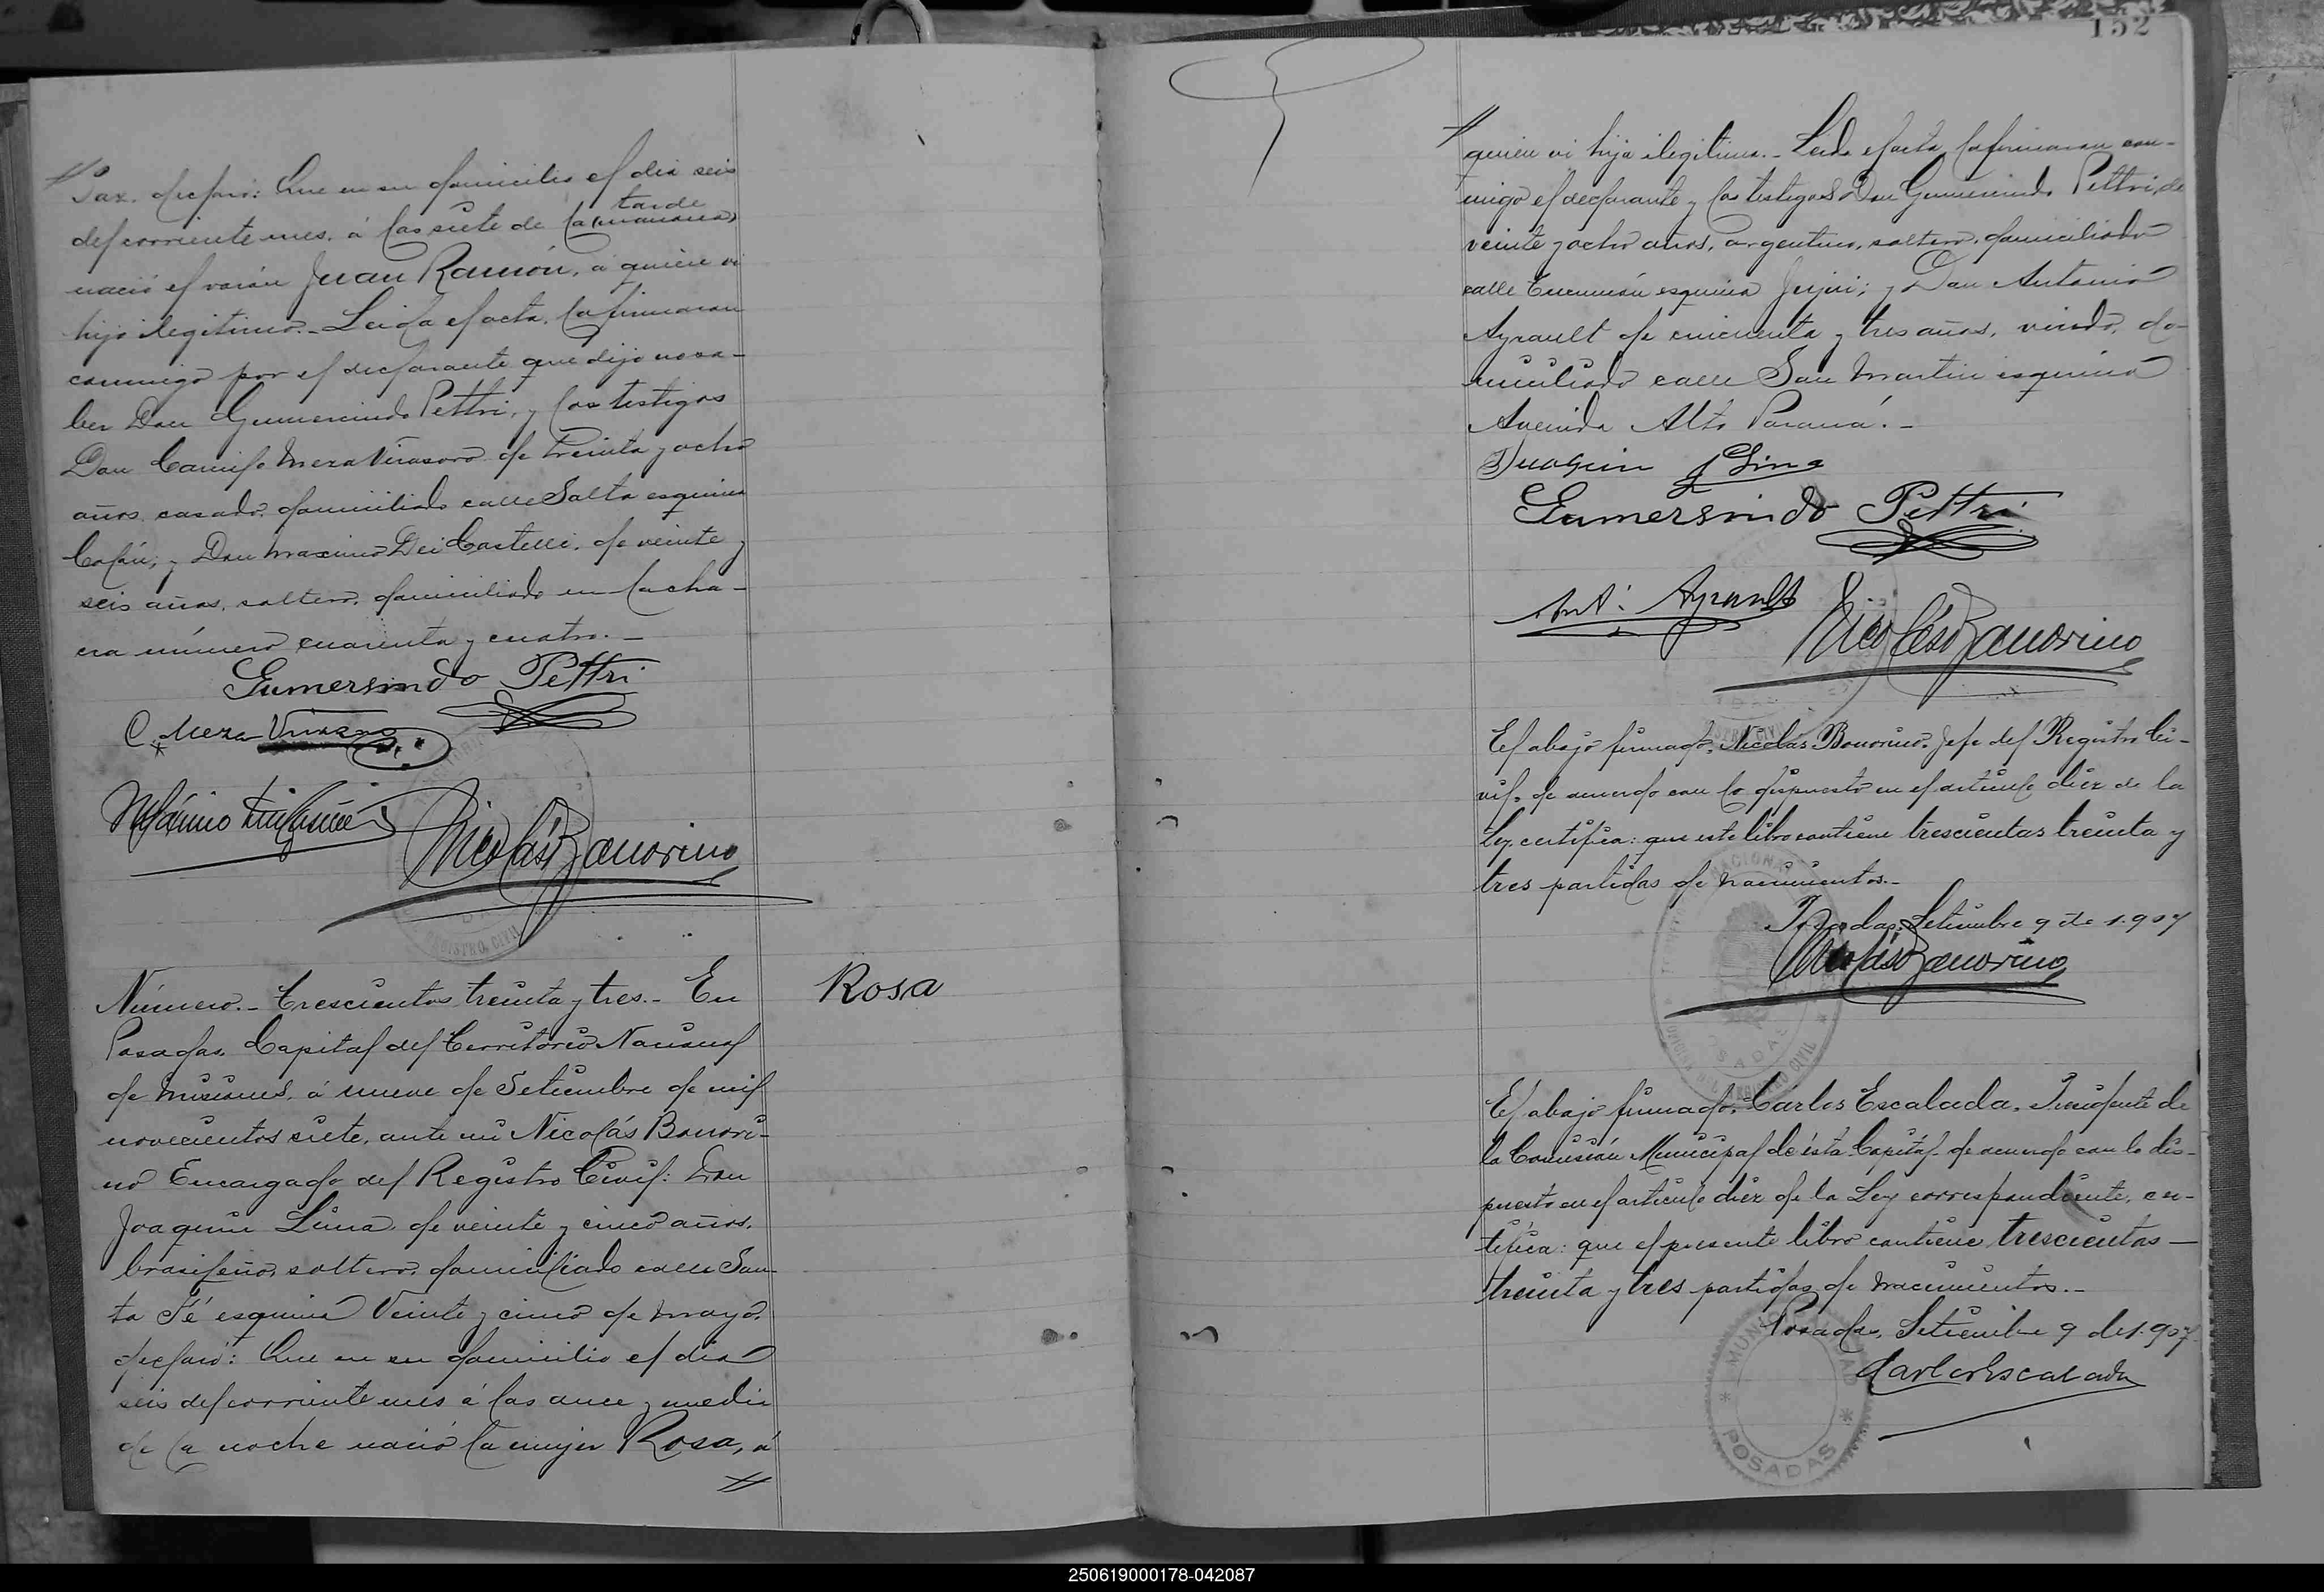 Paz. declaró: Que en su domicilio el dia seis
del corriente mes, á las siete de la (mañana) tarde
nació el varón Juan Ramón, á quien vi
hijo ilegítimo.- Leida el acta, la firmaron
conmigo por el declarante que dijo no sa-
ber Don Gumersindo Pettri, y los testigos
Don Camilo Meza Virasoro de treinta y ocho
años, casado, domiciliado calle Salta esquina
Colón; y Don Maximo Dei Castelli, de veinte y
seis años, soltero, domiciliado en la cha-
cra número cuarenta y cuatro.-
Gumersindo Pettri
C. Meza Virasoro
Máximo
Nicolás Bonorino
REGISTRO CIVIL
Número.- Trescientos treinta y tres.- En
Posadas, Capital del Territorio Nacional
de Misiones, á nueve de Setiembre de mil
novecientos siete, ante mi Nicolás Bonori-
no Encargado del Registro Civil: Don
Joaquin Lima, de veinte y cinco años,
brasileño, soltero, domiciliado calle San-
ta Fé esquina Veinte y cinco de Mayo,
declaró: Que en su domicilio el dia
seis del corriente mes á las once y media
de la noche nació la mujer Rosa, á
Rosa
152
quien vi hija ilegítima.- Leida el acta, la firmaron con-
migo el declarante y los testigos Don Gumersindo Pettri, de
veinte y ocho años, argentino, soltero, domiciliado
calle Tucumán esquina Jujui; y Don Antonio
Ayrault de cincuenta y tres años, viudo, do-
miciliado calle San Martin esquina
Avenida Alto Paraná.-
Juaquin Lima
Gumersindo Pettri
Ant. Ayrault
Nicolás Bonorino
El abajo firmado, Nicolas Bonorino, Jefe del Registro Ci-
vil, de acuerdo con lo dispuesto en el artículo diez de la
Ley, certifica: que este libro contiene trescientas treinta y
tres partidas de nacimientos.-
Posadas, Setiembre 9 de 1.907
Nicolás Bonorino
El abajo firmado, Cárlos Escalada, Presidente de
la Comisión Municipal de ésta Capital de acuerdo con lo dis-
puesto en el artículo diez de la Ley correspondiente, cer-
tifica: que el presente libro contiene trescientas
treinta y tres partidas de nacimientos.-
Posadas, Setiembre 9 de 1.907
Carlos Escalada
MUNICIPALIDAD
* POSADAS *
250619000178-042087